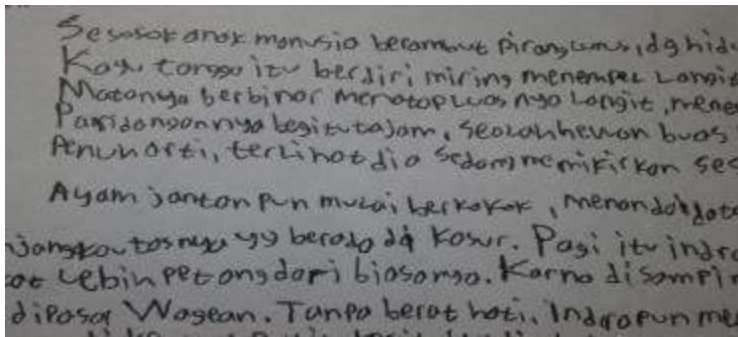 Sesosok anak manusia berambut pirang lurus, dg hid
Kayu tangga itu berdiri miring menempel Langit
Matanya berbinar menatap luas nya Langit, mene
Pandangannya begitu tajam, seolah hewan buas
Penuh arti, terlihat dia sedang memikirkan ses
Ayam jantan pun mulai berkokok, menandakan
jangkau tasnya yg berada di kasur. Pagi itu indra
Lebih petang dari biasanya. Karna disampin
dipasar Wagean. Tanpa berat hati, Indrapun me